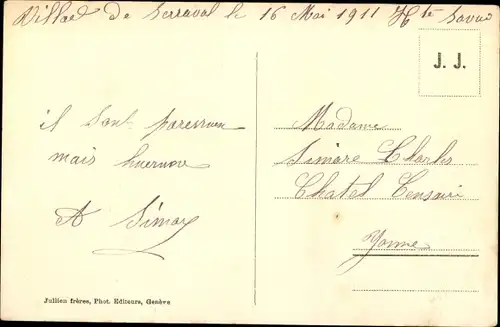 Villae de Serraval le 16 Mai 1911 Hte Savoie
J. J.
il sont paresseu
mais
A Simay
Madame
Simare Charles
Chatel Censoir
Yonne
Jullien frères, Phot. Editeurs, Genève